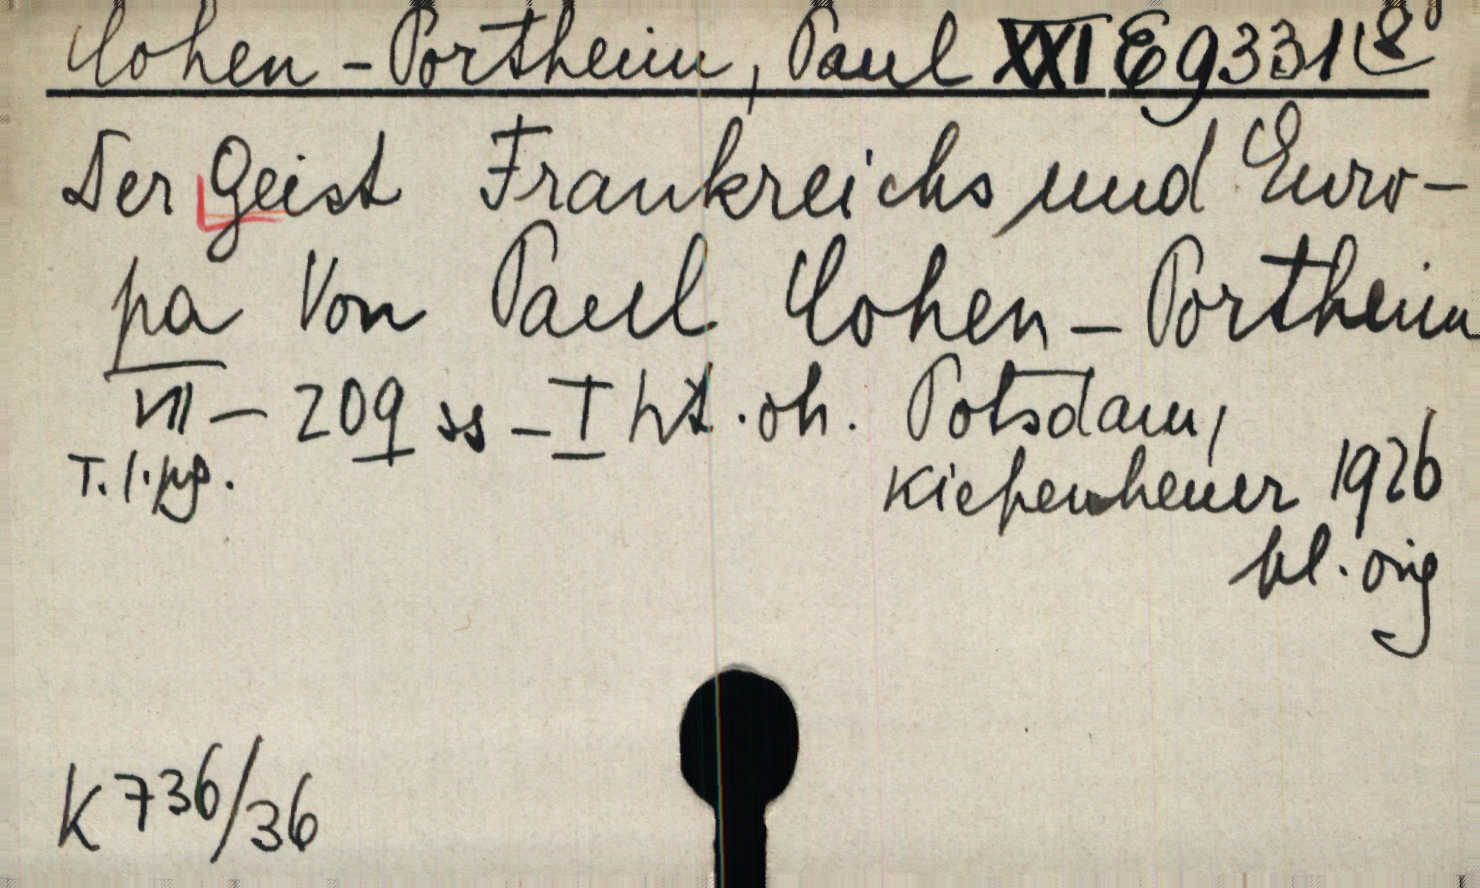 Cohen-Portheim, Paul XXI E 9331 8°
Der Geist Frankreichs und Euro-
pa Von Paul Cohen-Portheim
VII - 209 ss - I ht. oh. Potsdam,
T. l. pp. Kiepenheuer 1926
kl. orig
K 736/36